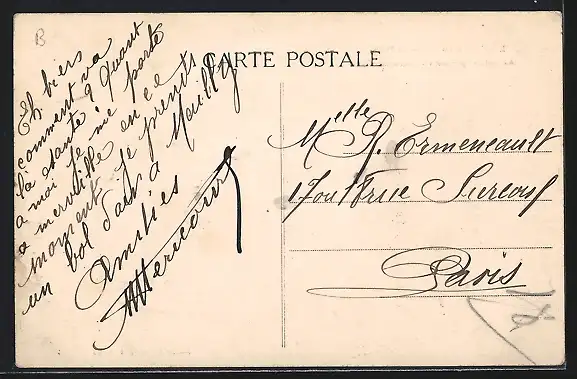 B
CARTE POSTALE
Eh biens
comment va
la santé ? Quant
a moi je me porte
a merveille en ce
moment je prends
un bol d'air à Mailly
Amitiés
Mlle R. Ermeneault
17 rue Surcouf
Paris